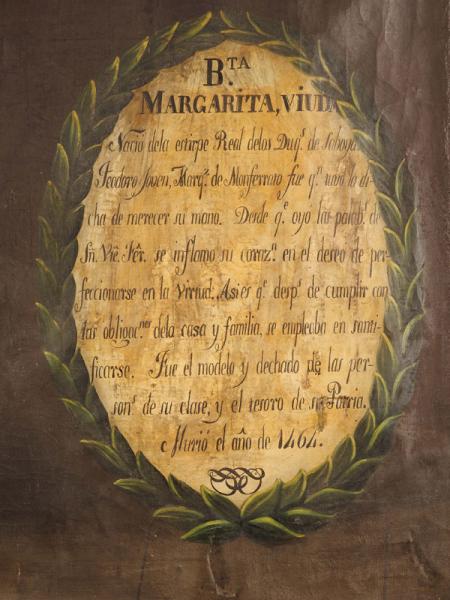 B.TA
MARGARITA, VIUDA
Nació dela estirpe Real delos Duqs. de Saboya
Teodoro Joven, Marqs. de Monferrato fue qn. tubo la di-
cha de merecer su mano. Desde qe. oyo las palabs. de
Sn. Vic. Fêr. se inflamo su corazn. en el deseo de per-
feccionarse en la Virtud. Asi es qe. desps. de cumplir con
las obligoc.nes dela casa y familia, se empleaba en santi-
ficarse. Fue el modelo y dechado de las per-
sons. de su clase, y el tesoro de su Patria.
Murió el año de 1464.